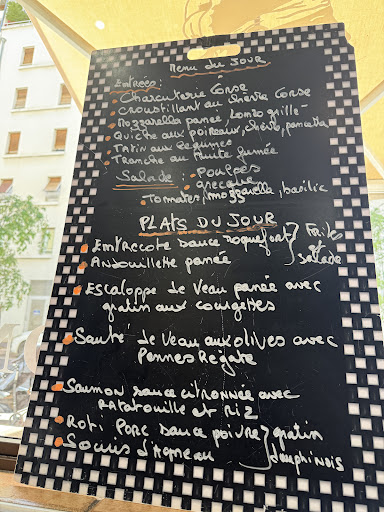 Menu du JOUR
Entrées:
Charcuterie Corse
Croustillant au chèvre Corse
Mozzarella panée, lomzo grillé
Quiche aux poireaux, chèvre, pancetta
Tatin aux légumes
Tranche au truite fumée
Salade : Poulpes
grecque
Tomates, mozzarella, basilic
PLATS DU JOUR
Entrecote sauce roquefort } Frites
Andouillette panée } et salade
Escaloppe de veau panée avec
gratin aux courgettes
Sauté de veau aux olives avec
Pennes Régate
Saumon sauce citronnée avec
Ratatouille et Riz
Roti Porc sauce poivre } gratin
Souris d'Agneau } dauphinois